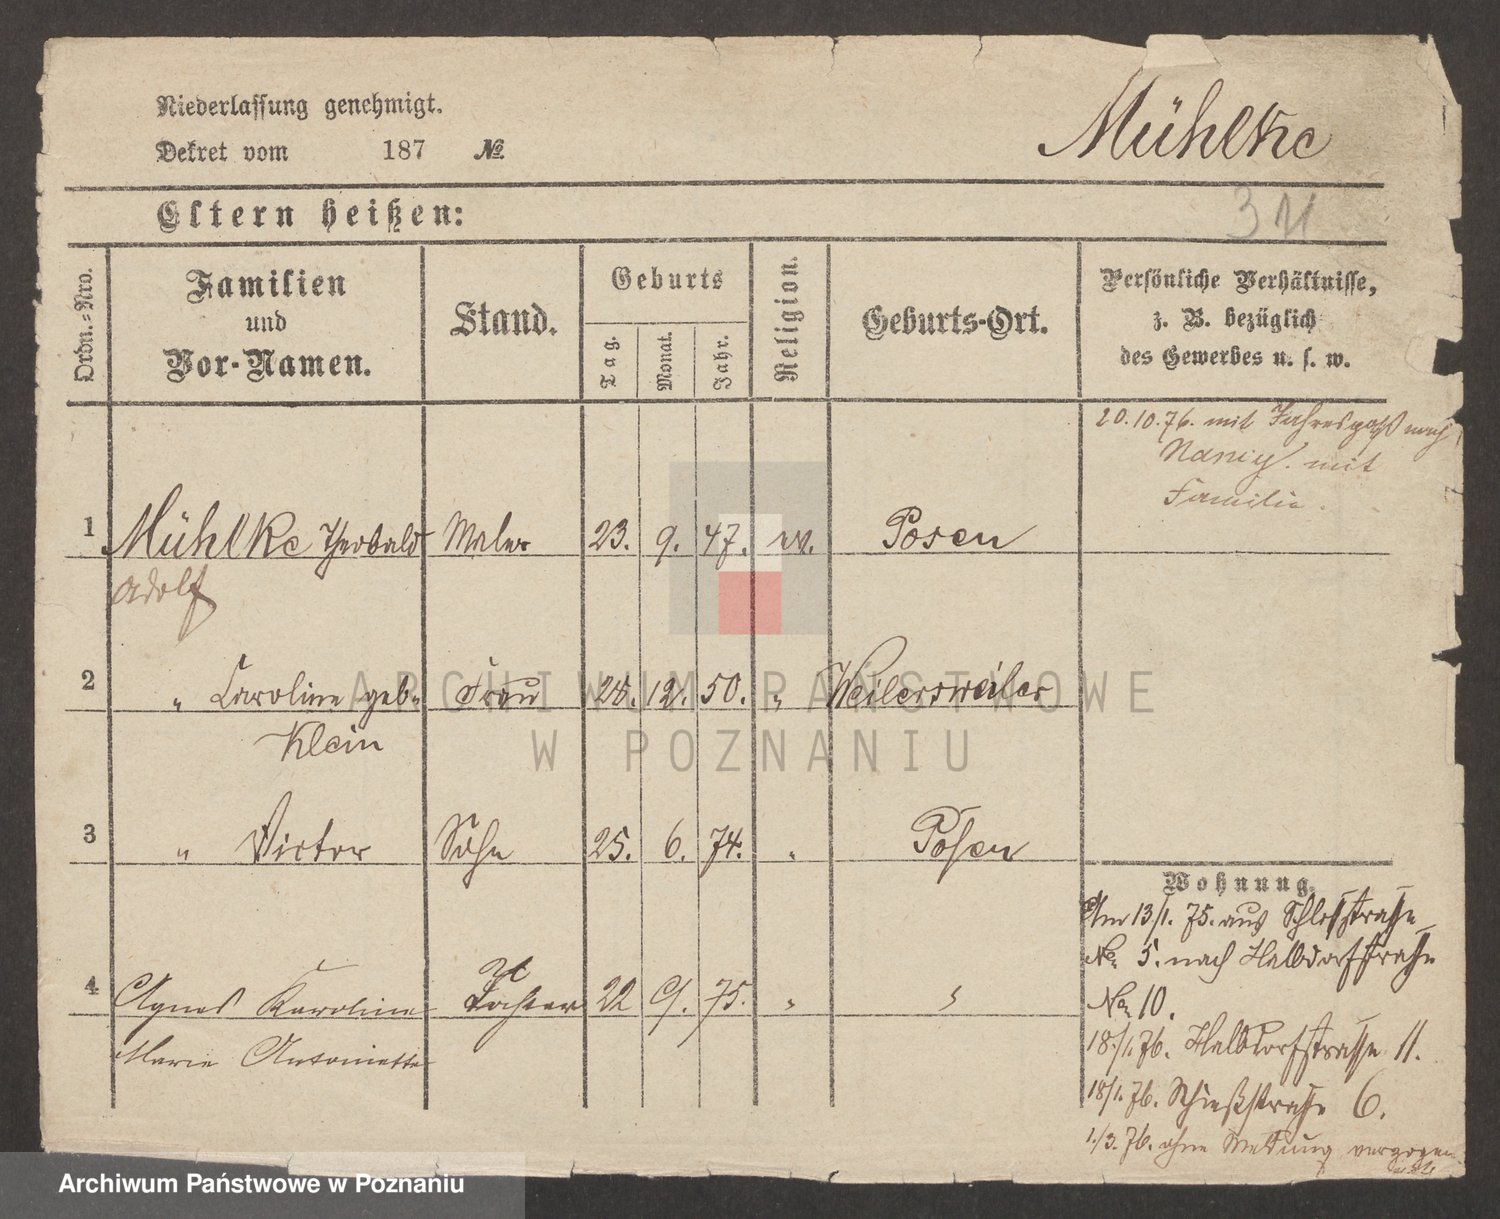 Niederlassung genehmigt.
Dekret vom 187 №.
Mühlke
Eltern heißen:
Ordn.-Nro.
Familien
und
Vor-Namen.
Stand.
Geburts
Tag.
Monat.
Jahr.
Religion.
Geburts-Ort.
Persönliche Verhältnisse,
z. B. bezüglich
des Gewerbes u. s. w.
20.10.76. mit Jahrespaß nach
Nancy. mit
Familie.
1 Mühlke Theobald Maler 23. 9. 47. ev. Posen
Adolf
2 " Caroline geb. Frau 25. 12. 50. " Weilersweiler
Klein
3 " Victor Sohn 25. 6. 74. " Posen
4 Agnes Karoline Tochter 22 9. 75. " "
Marie Antoinette
Wohnung.
Am 13/1. 75. aus Schloßstrasse
No. 5. nach Halbdorfstrasse
No 10.
18/1. 76. Halbdorfstrasse 11.
18/1. 76. Schießstrasse 6.
1./3. 76. ohne Meldung verzogen
ARCHIWUM PAŃSTWOWE
W POZNANIU
Archiwum Państwowe w Poznaniu